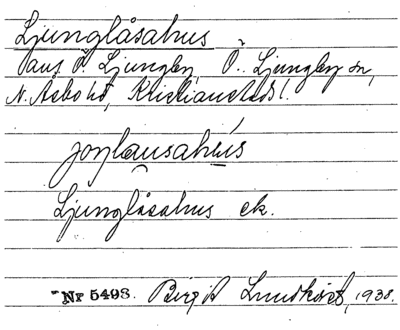 Ljunglåsahus
Ö. Ljungby, Ö. Ljungby sn,
N. Åsbo hd, Kristianstads l.
joŋlausahus
Ljunglåsahus ek.
Nr 5498. Birgit Lundkvist, 1938.